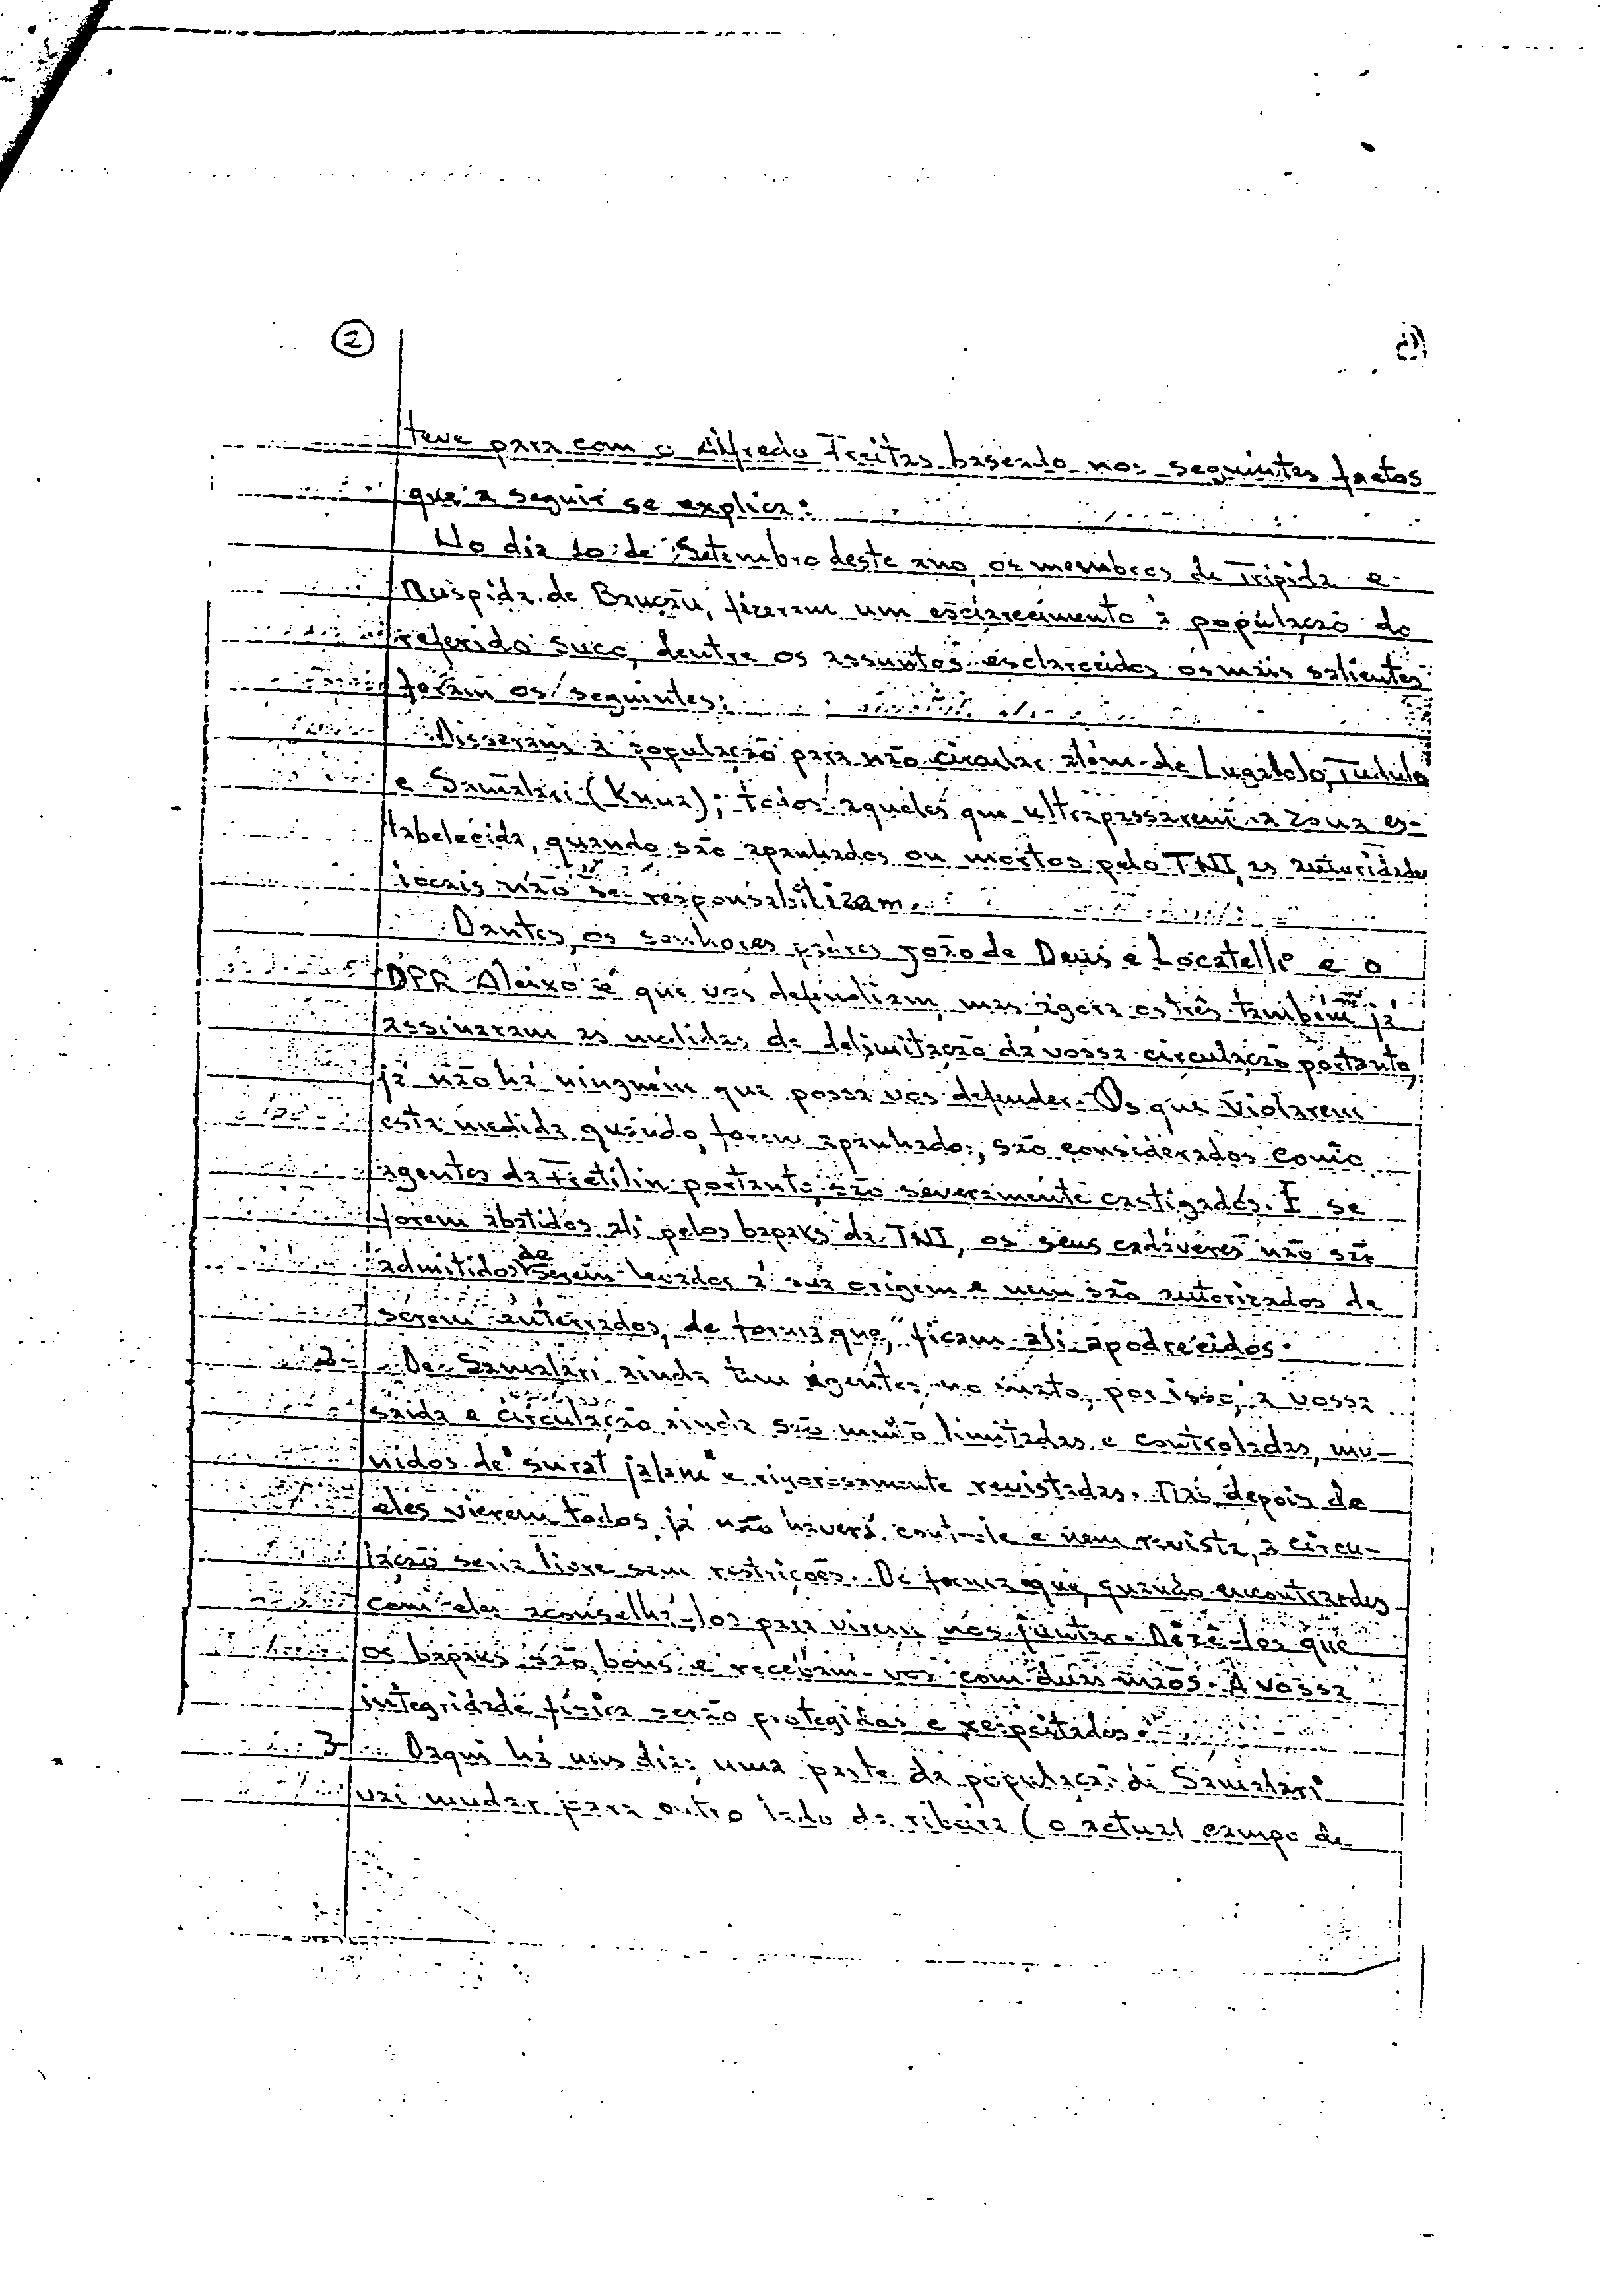 2
teve para com o Alfredo Freitas baseado nos seguintes factos
que a seguir se explica:
No dia 10 de Setembro deste ano, os membros de Tripida e
Muspida de Baucau, fizeram um esclarecimento à população do
referido suco, dentre os assuntos esclarecidos os mais salientes
foram os seguintes:
Disseram à população para não circular além de Lugatolo, Tudulo
e Samalari (Knua); todos aqueles que ultrapassarem a zona es-
tabelecida, quando são apanhados ou mortos pelo TNI, as autoridades
locais não se responsabilizam.
Dantes, os senhores padres João de Deus e Locatelli e o
DPR Aleixo é que vos defendiam, mas agora os três também já
assinaram as medidas de delimitação da vossa circulação portanto,
já não há ninguém que possa vos defender. Os que violarem
esta medida quando forem apanhados, são considerados como
agentes da Fretilin portanto, são severamente castigados. E se
forem abatidos ali pelos bapaks da TNI, os seus cadáveres não são
admitidos de serem levados à sua origem e nem são autorizados de
serem enterrados, de forma que, ficam ali apodrecidos.
2- De Samalari ainda tem agentes no mato, por isso, a vossa
saida e circulação ainda são muito limitadas e controladas, mu-
nidos de "surat jalam" e rigorosamente revistadas. Mas depois de
eles vierem todos, já não haverá controle e nem revista, a circu-
lação seria livre sem restrições. De forma que, quando encontrardes
com eles aconselhá-los para virem nos juntar. Dizê-los que
os bapaks são bons e recebam-vos com duas mãos. A vossa
integridade física serão protegidas e respeitados.
3- Daqui há uns dias uma parte da população de Samalari
vai mudar para outro lado da ribeira (o actual campo de